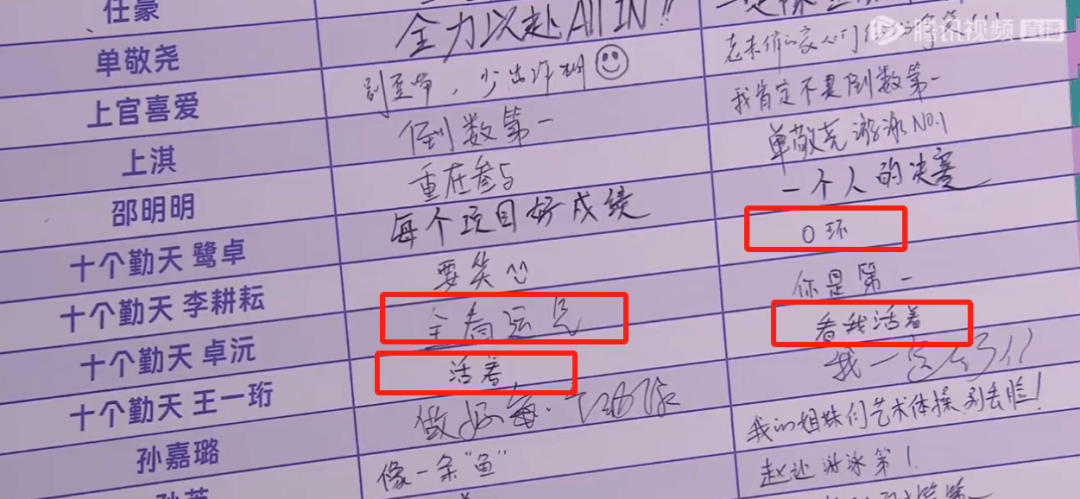 任豪
全力以赴 All IN!!
腾讯视频 直播
单敬尧
少出诈胡
我肯定不是倒数第一
上官喜爱
倒数第一
单敬尧游泳NO.1
上淇
重在参与
一个人的决赛
邵明明
每个项目好成绩
0环
十个勤天 鹭卓
要笑
你是第一
十个勤天 李耕耘
全看运气
看我活着
十个勤天 卓沅
活着
我一定
十个勤天 王一珩
做好每
我的姐妹们艺术体操别丢脸！
孙嘉璐
像一条“鱼”
游泳第1.